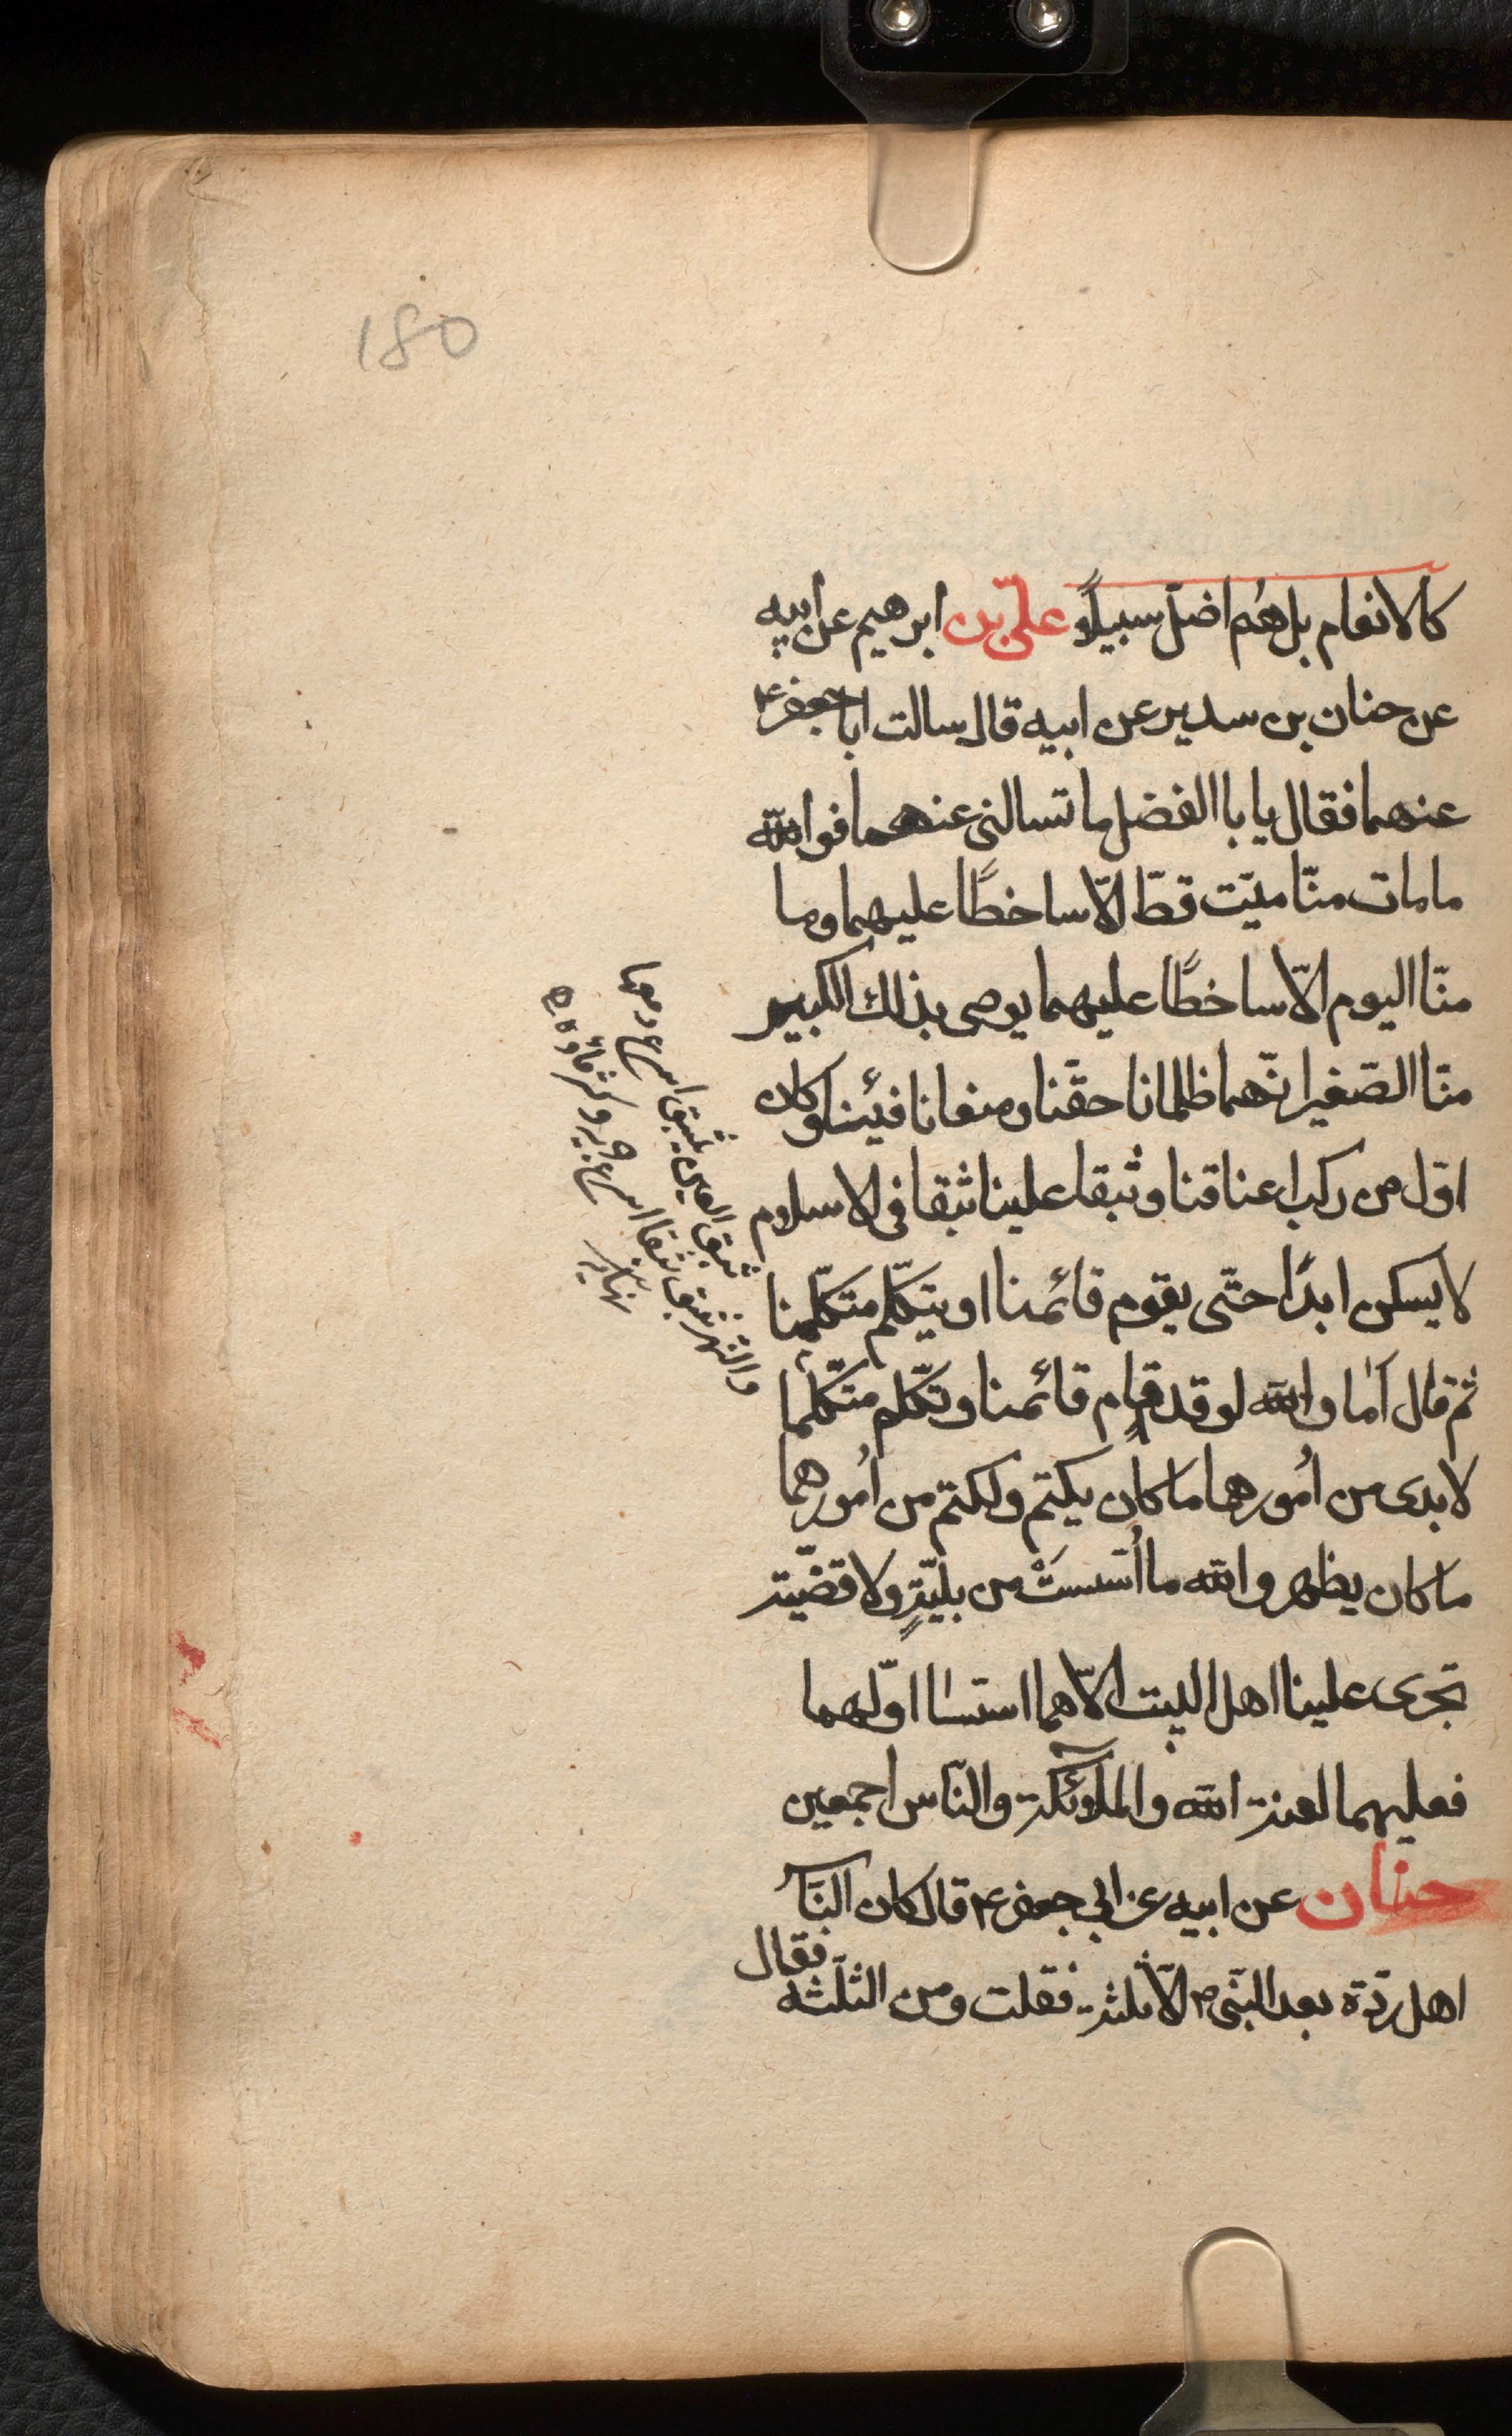 180
كالانعام بل هم اضلّ سبيلًا علىّ بن ابرهيم عن ابيه
عن حنان بن سدير عن ابيه قال سالت ابا جعفر ع
عنهما فقال يا با الفضل ما تسالنى عنهما فوالله
ما مات منّا ميّت قطّ الّا ساخطًا عليهما وما
منّا اليوم الّا ساخطًا عليهما يوصى بذلك الكبير
منّا الصّغير انّهما ظلمانا حقّنا ومنعانا فيئنا وكان
اوّل من ركب اعناقنا وثبقا علينا ثبقا فى الاسلام
لا يسكن ابدًا حتّى يقوم قائمنا او يتكلّم متكلّمنا
ثم قال اما والله لو قد قام قائمنا وتكلّم متكلّمنا
لا بدى من اُمورهما ما كان يكتم ولكتم من اُمورهما
ما كان يظهر والله ما اُسّسَتْ من بليّةٍ ولا قضيّة
تجرى علينا اهل البيت الّا هما اسّسا اوّلهما
فعليهما لعنة الله والملائكة والنّاس اجمعين
حنان عن ابيه عن ابي جعفر ع قال كان النّاس
اهل ردّة بعد النّبى ص الّا ثلثة فقلت ومن الثلثه
فقال
ثبق العين يثبق اسرع دمعها
والنهر ثبق ثبقا اسرع جريه وكثر ماؤه